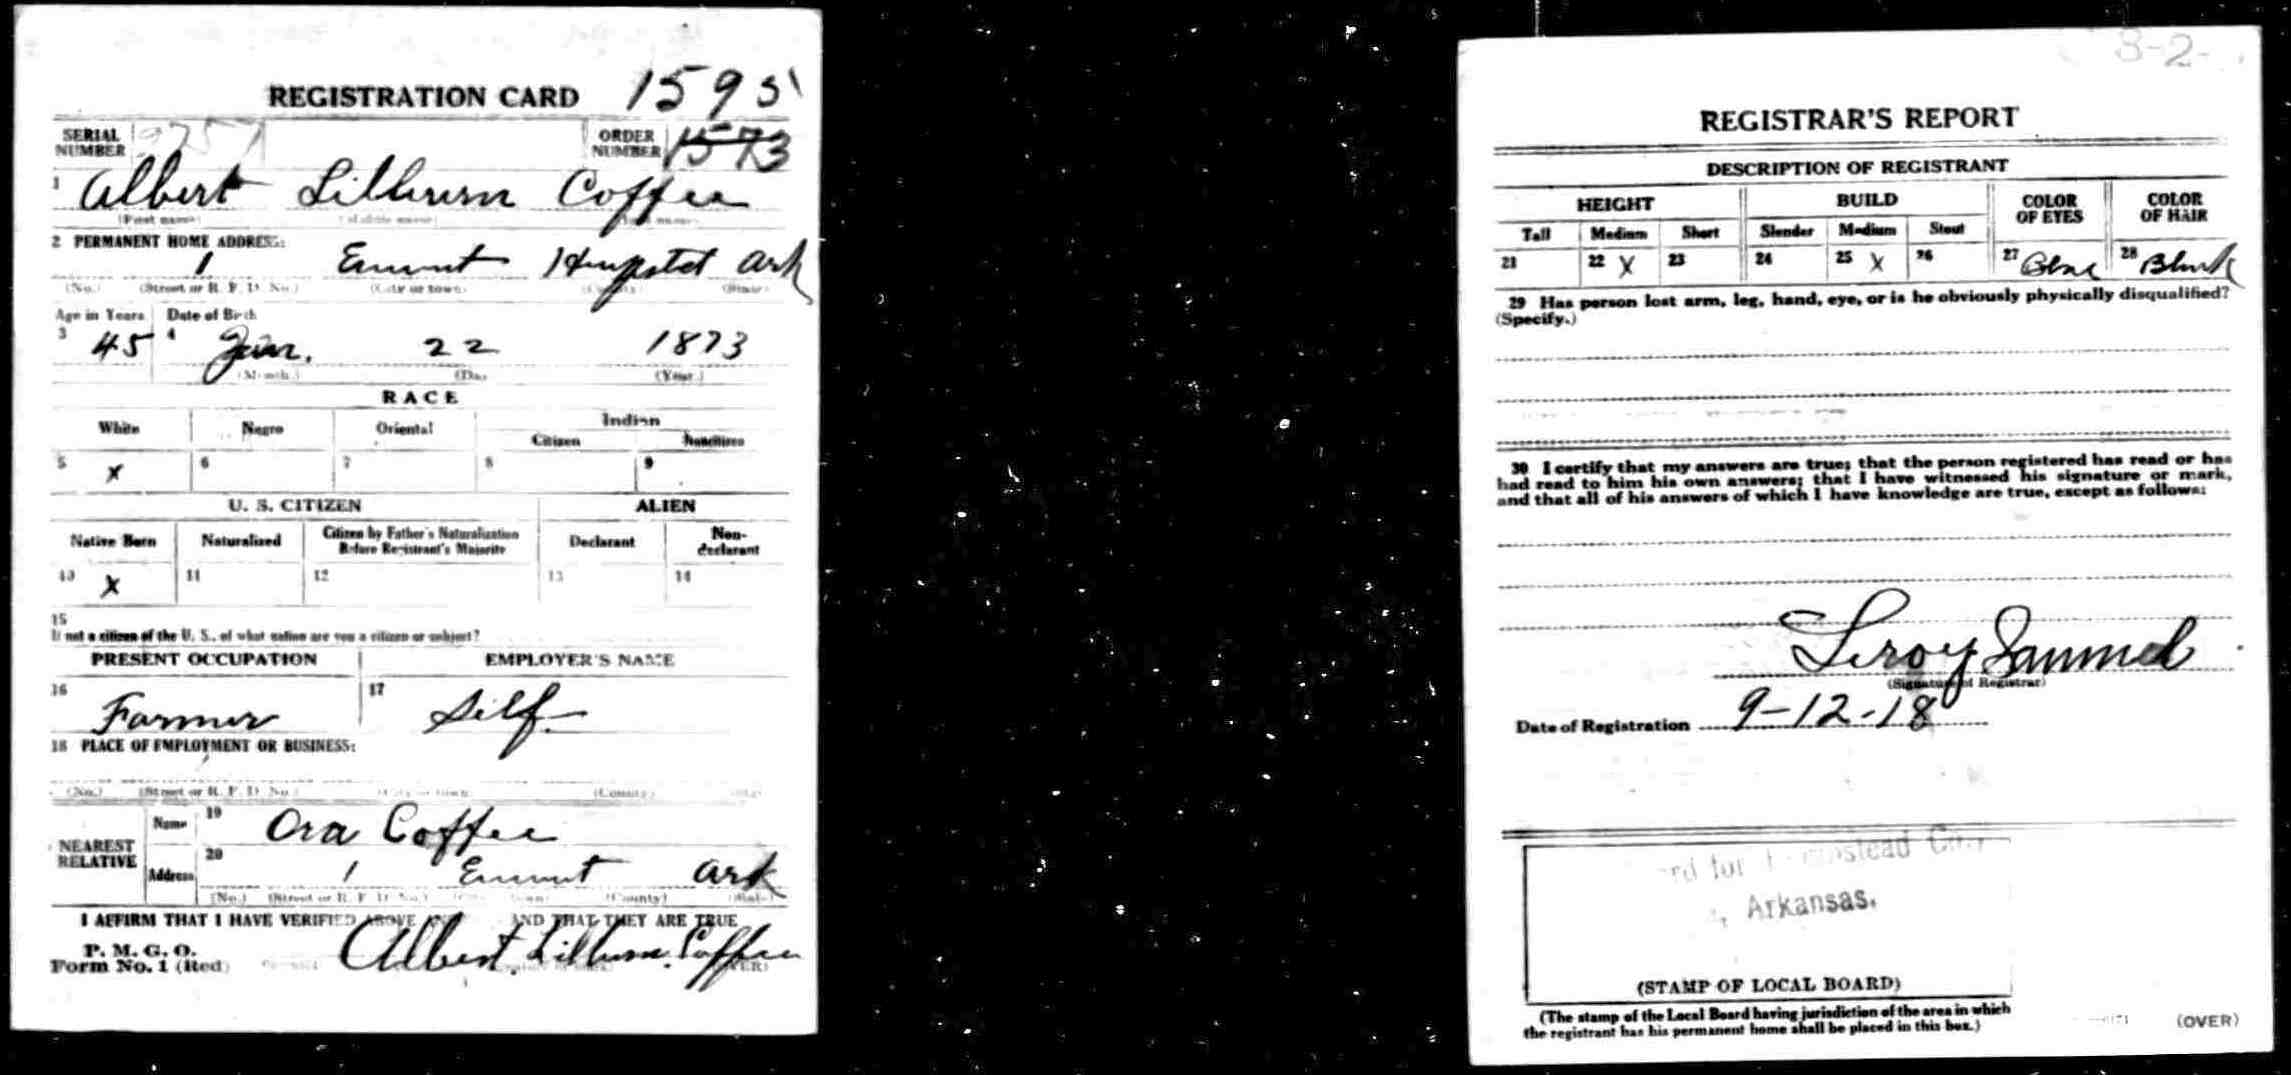 REGISTRATION CARD 1595
SERIAL NUMBER ORDER NUMBER 1573
1 Albert Lillurm Coffee
(First name) (Middle name) (Last name)
2 PERMANENT HOME ADDRESS:
1 Emmt Hempsted Ark
(No.) (Street or R. F. D. No.) (City or town) (County) (State)
Age in Years Date of Birth
3 45 4 Jan. 22 1873
(Month.) (Day.) (Year.)
RACE
White Negro Oriental Indian
Citizen Noncitizen
5 X 6 7 8 9
U. S. CITIZEN ALIEN
Native Born Naturalized Citizen by Father's Naturalization Before Registrant's Majority Declarant Non-declarant
10 X 11 12 13 14
15
If not a citizen of the U. S., of what nation are you a citizen or subject?
PRESENT OCCUPATION EMPLOYER'S NAME
16 Farmer 17 Self
18 PLACE OF EMPLOYMENT OR BUSINESS:
(No.) (Street or R. F. D. No.) (City or town) (County)
NEAREST RELATIVE
Name 19 Ora Coffee
Address 20 1 Emmt Ark
(No.) (Street or R. F. D. No.) (County) (State)
I AFFIRM THAT I HAVE VERIFIED ABOVE AND THAT THEY ARE TRUE
P. M. G. O.
Form No. 1 (Red) Albert Lillurm Coffee
(OVER)
3-2-
REGISTRAR'S REPORT
DESCRIPTION OF REGISTRANT
HEIGHT BUILD COLOR OF EYES COLOR OF HAIR
Tall Medium Short Slender Medium Stout
21 22 X 23 24 25 X 26 27 28 Black
29 Has person lost arm, leg, hand, eye, or is he obviously physically disqualified?
(Specify.)
30 I certify that my answers are true; that the person registered has read or has
had read to him his own answers; that I have witnessed his signature or mark,
and that all of his answers of which I have knowledge are true, except as follows:
Leroy Sammel
(Signature of Registrar)
Date of Registration 9-12-18
Arkansas.
(STAMP OF LOCAL BOARD)
(The stamp of the Local Board having jurisdiction of the area in which
the registrant has his permanent home shall be placed in this box.)
(OVER)